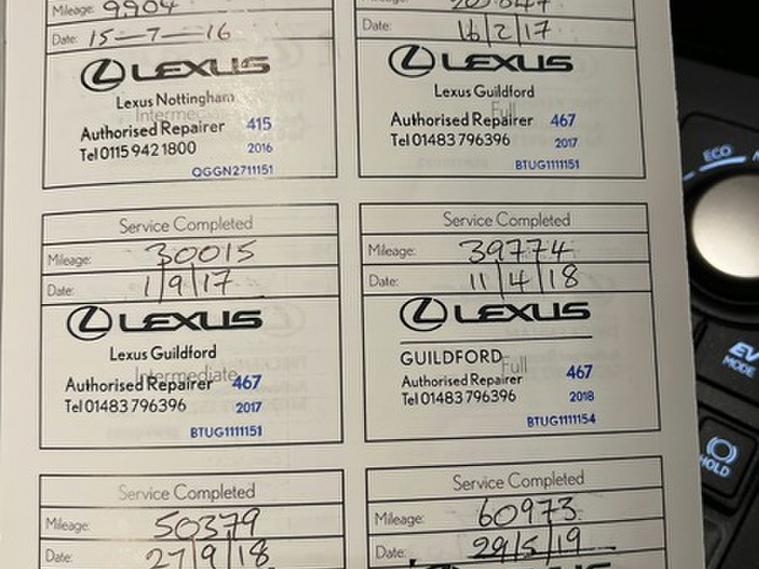 Mileage: 9904
Date: 15-7-16
LEXUS
Lexus Nottingham
Intermediate
Authorised Repairer 415
Tel 0115 942 1800 2016
QGGN2711151
Date: 16/2/17
LEXUS
Lexus Guildford
Full
Authorised Repairer 467
Tel 01483 796396 2017
BTUG1111151
Service Completed
Mileage: 30015
Date: 1/9/17
LEXUS
Lexus Guildford
Intermediate
Authorised Repairer 467
Tel 01483 796396 2017
BTUG1111151
Service Completed
Mileage: 39774
Date: 11/4/18
LEXUS
GUILDFORD
Full
Authorised Repairer 467
Tel 01483 796396 2018
BTUG1111154
Service Completed
Mileage: 50379
Date: 27/9/18
Service Completed
Mileage: 60973
Date: 29/5/19
LEXUS
ECO
EV
MODE
HOLD